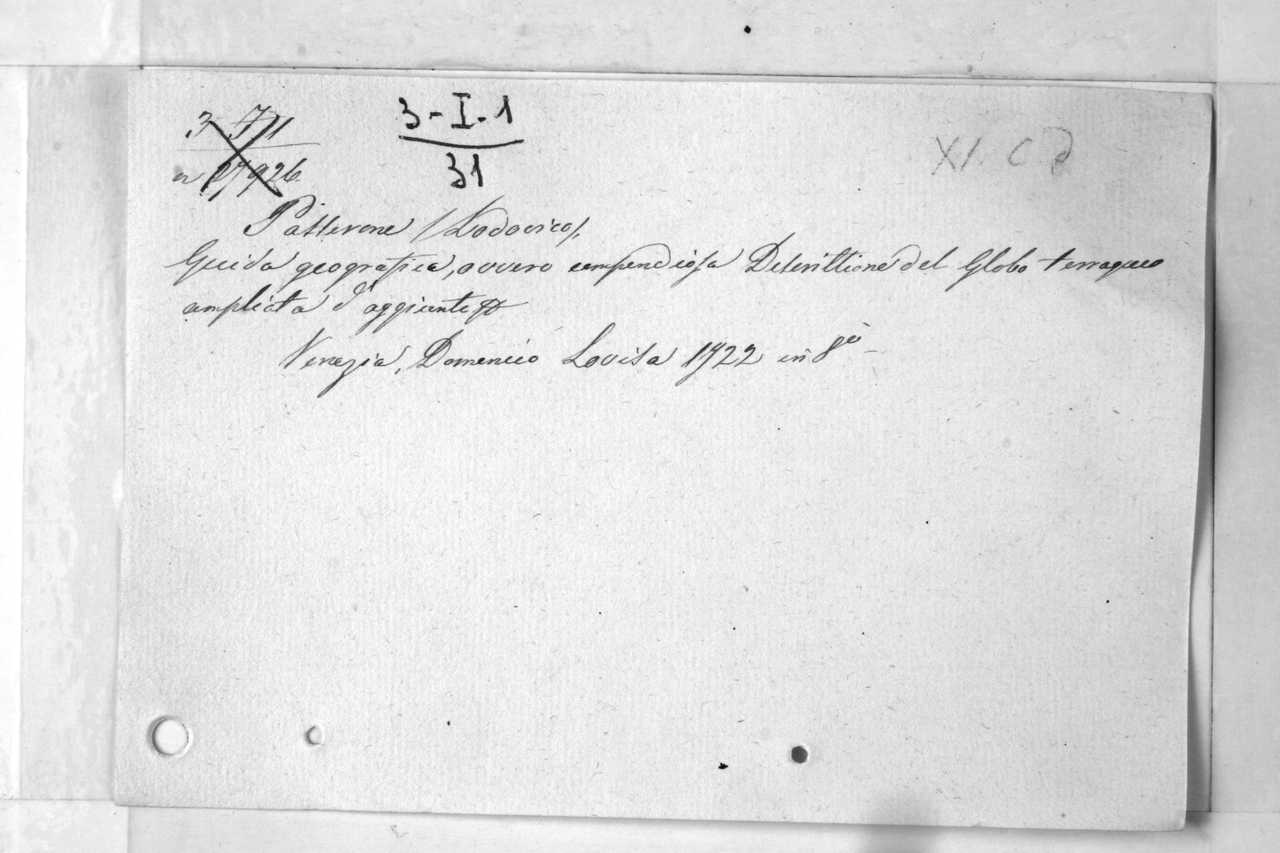 3-I-1
31
XI. C.
Passerone (Lodovico),
Guida geografica, ovvero compendiosa Descrittione del Globo terraqueo
ampliata d'aggiunte
Venezia, Domenico Lovisa 1722 in 8°